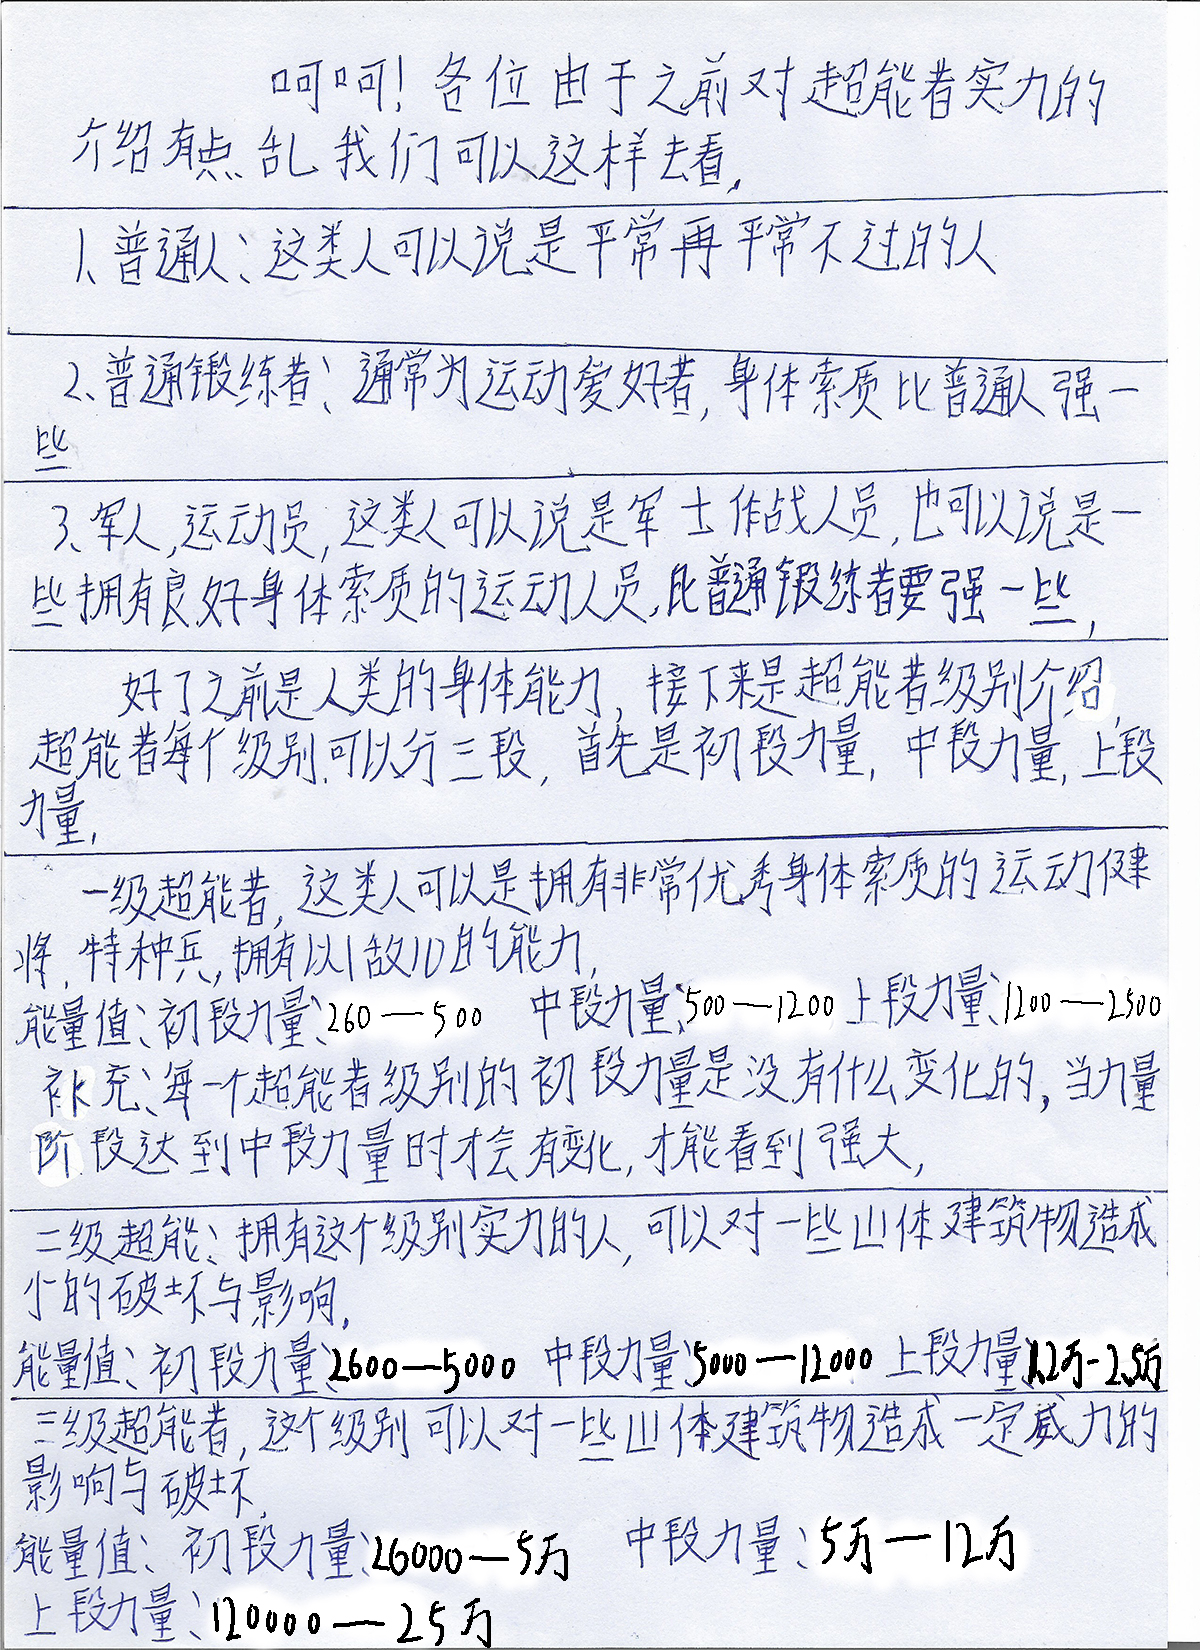 呵呵！各位由于之前对超能者实力的
介绍有点乱我们可以这样去看,
1、普通人：这类人可以说是平常再平常不过的人
2、普通锻练者：通常为运动爱好者,身体索质比普通人强一
些
3、军人,运动员,这类人可以说是军士作战人员,也可以说是一
些拥有良好身体索质的运动人员,比普通锻练者要强一些,
好了之前是人类的身体能力,接下来是超能者级别介绍,
超能者每个级别可以分三段,首先是初段力量,中段力量,上段
力量,
一级超能者,这类人可以是拥有非常优秀身体索质的运动健
将,特种兵,拥有以1敌10的能力,
能量值：初段力量：260—500 中段力量：500—1200 上段力量：1200—2500
补充：每一个超能者级别的初段力量是没有什么变化的,当力量
阶段达到中段力量时才会有变化,才能看到强大,
二级超能：拥有这个级别实力的人,可以对一些山体建筑物造成
小的破坏与影响,
能量值：初段力量：2600—5000 中段力量：5000—12000 上段力量：1.2万-2.5万
三级超能者,这个级别可以对一些山体建筑物造成一定威力的
影响与破坏,
能量值：初段力量：26000—5万 中段力量：5万—12万
上段力量：120000—25万